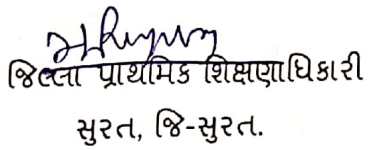 જિલ્લા પ્રાથમિક શિક્ષણાધિકારી
સુરત, જિ-સુરત.